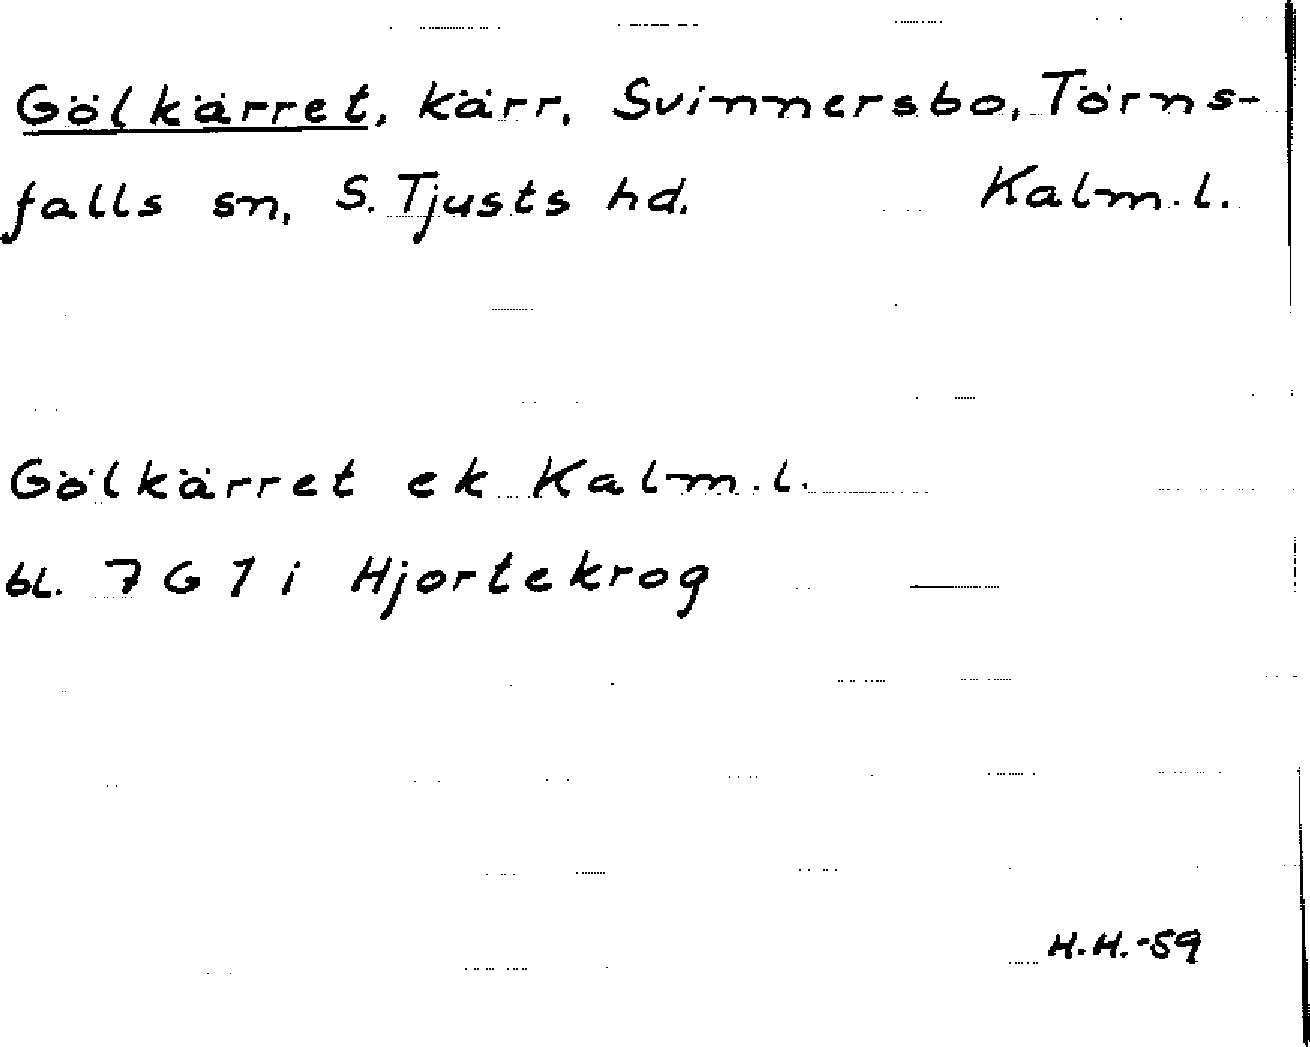 Gölkärret, kärr, Svinnersbo, Törns-
falls sn, S. Tjusts hd. Kalm. l.
Gölkärret ek Kalm. l.
bl. 7 G 7 i Hjortekrog
H.H.-59